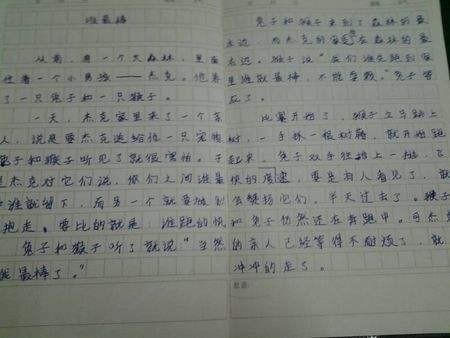 谁最棒
从前,有一个大森林,里面
住着一个小男孩——杰克。他养
了一只兔子和一只猴子。
一天,杰克家里来了一个客
人,说是要杰克送给他一只宠物
兔子和猴子听见了就很害怕。于
是杰克对它们说,你们之间谁最
谁就留下,而另一个就要被别
抱走。要比的就是:谁跑的快
兔子和猴子听了就说"当然
我最棒了。"
兔子和猴子来到了森林的最
远,而杰克的家是在森林的最
远。猴子说"我们谁先跑到家
里谁就最棒,不能拿数。"兔子答
应了。
比赛开始了,猴子立马跳上
树,一手抓一根树藤,就开始跑
起来。兔子双手往地上一拍,飞
快的
要是有人看见了,就
会觉得它们,半天过去了。猴子
和兔子仍然还在奔跑中。可杰克
的亲人已经等得不耐烦了,就
冲冲的走了。